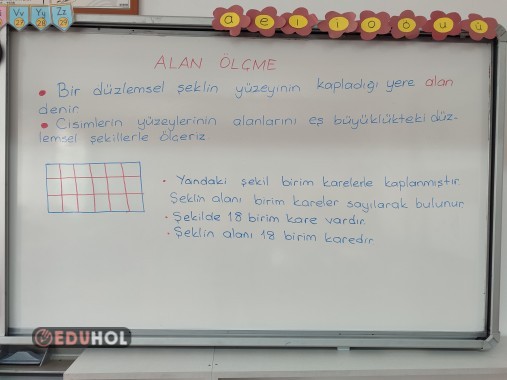 Vv Yy Zz
27 28 29
a e ı i o ö u ü
ALAN ÖLÇME
• Bir düzlemsel şeklin yüzeyinin kapladığı yere alan
denir
• Cisimlerin yüzeylerinin alanlarını eş büyüklükteki düz-
lemsel şekillerle ölçeriz
• Yandaki şekil birim karelerle kaplanmıştır
Şeklin alanı birim kareler sayılarak bulunur
• Şekilde 18 birim kare vardır
• Şeklin alanı 18 birim karedir
EDUHOL